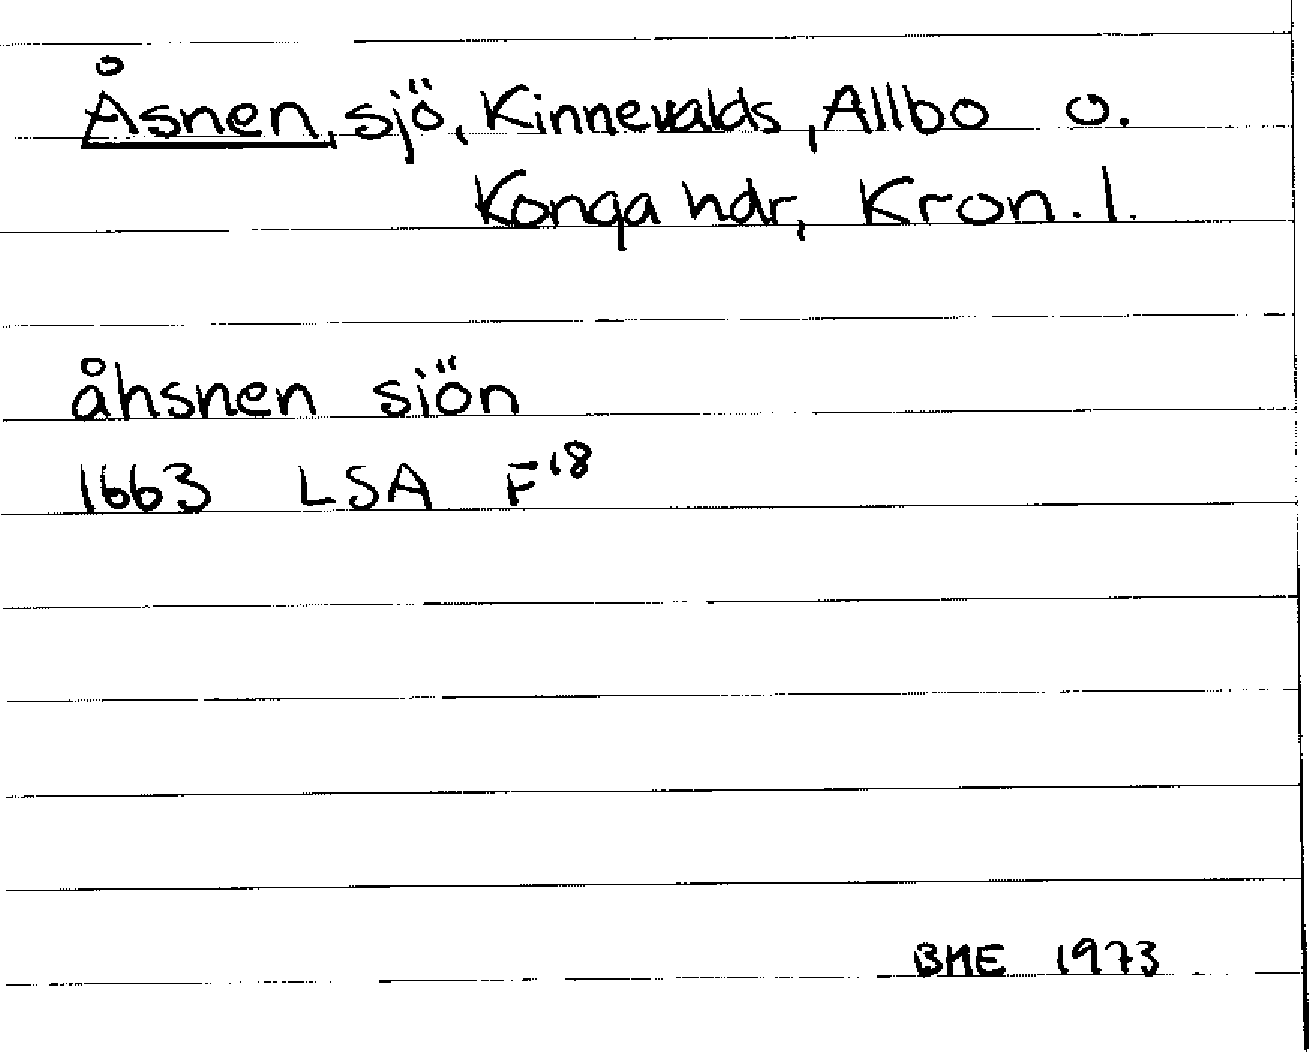 Åsnen, sjö, Kinnevalds, Allbo o.
Konga hdr, Kron. l.
åhsnen siön
1663 LSA F18
BME 1973